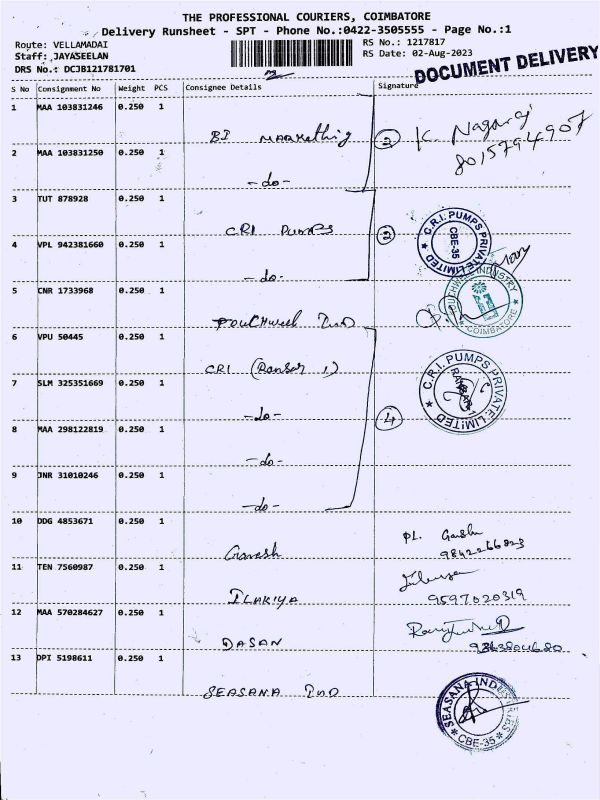 THE PROFESSIONAL COURIERS, COIMBATORE
Delivery Runsheet - SPT - Phone No.:0422-3505555 - Page No.:1
Route: VELLAMADAI
RS No.: 1217817
Staff: JAYASEELAN
RS Date: 02-Aug-2023
DRS No.: DCJB121781701
DOCUMENT DELIVERY
S No Consignment No Weight PCS Consignee Details Signature
1 MAA 103831246 0.250 1
BI Marketting
3 K. Nagaraj
8015794907
2 MAA 103831250 0.250 1
-do-
3 TUT 878928 0.250 1
CRI Pumps
2
C.R.I. PUMPS PRIVATE LIMITED
CBE-35
4 VPL 942381660 0.250 1
-do-
5 CNR 1733968 0.250 1
Touchwell Ind
TOUCHWELL INDUSTRY
COIMBATORE
6 VPU 50445 0.250 1
CRI (Ransar 1)
C.R.I. PUMPS PRIVATE LIMITED
7 SLM 325351669 0.250 1
-do-
4
8 MAA 298122819 0.250 1
-do-
9 JNR 31010246 0.250 1
-do-
10 DDG 4853671 0.250 1
Ganesh
PL. Ganesh
9842266823
11 TEN 7560987 0.250 1
ILAKIYA
9597020319
12 MAA 570284627 0.250 1
DASAN
13 DPI 5198611 0.250 1
SEASANA IND
SEASANA INDUSTRIES
CBE-35